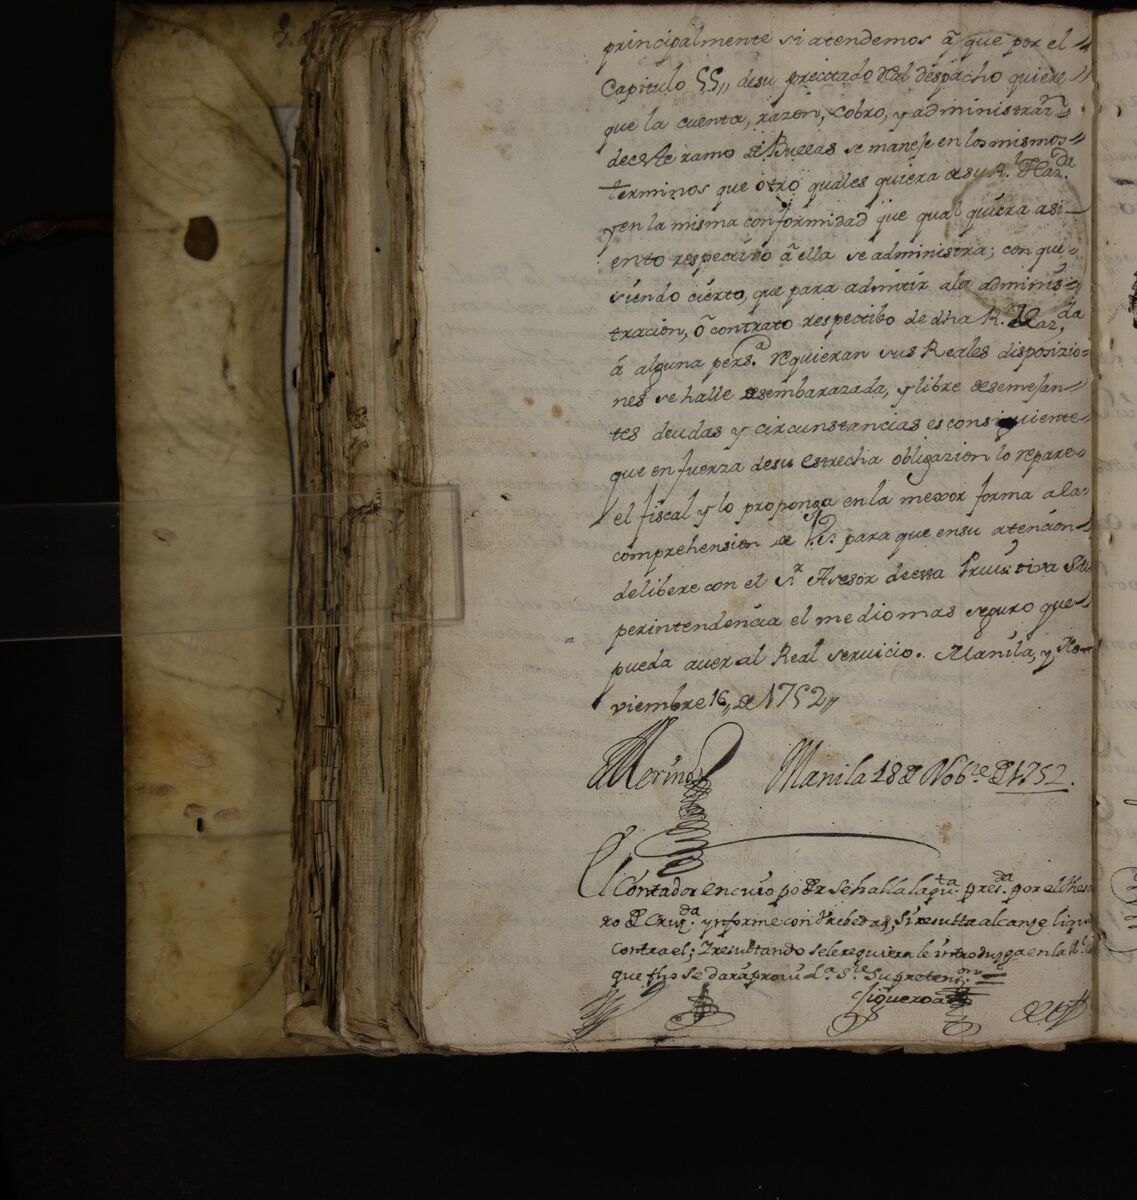 principalmente si atendemos â que por el
Capitulo 55,, desu precitado Rˡ despacho quiere
que la cuenta, razon, cobro, y administraz.ⁿ
deceste ramo de Bullas se maneje en los mismos
terminos que otro quales quiera de su R.ˡ Haz.ᵈᵃ
y en la misma conformidad que qual quiera asi-
ento respectivo â ella se administra; con que
siendo cierto, que para admitir ala adminis-
tracion, ô contrato respectibo de dha R.ˡ Haz,ᵈᵃ
á alguna pers.ᵃ requieran sus Reales disposizio-
nes se halle desembarazada, y libre de semejan-
tes deudas y circunstancias es consiguiente
que en fuerza desu estrecha obligazion lo repare
el fiscal y lo proponga en la mexor forma ala
comprehension de V.S. para que ensu atencion
delibere con el S.ʳ Asesor deessa Privativa Su
perintendencia el medio mas seguro que
pueda aver al Real servicio. Manila, y No-
viembre 16,, de 1752,,
Merino
Manila 18 de Nob.ʳᵉ de 1752.
El Contador encuio poder sehalla la qu.ᵗᵃ pres.ᵈᵃ por el theso
ro de Cruz.ᵈᵃ ynforme con brebedad, si resulta alcanze liqui
contra el; Y resultando sele requiera le introduzga en la R.ˡ
que fho se dará provid.ᵃ S.ʳᵉ su preten.ᵒⁿ
Figueroa